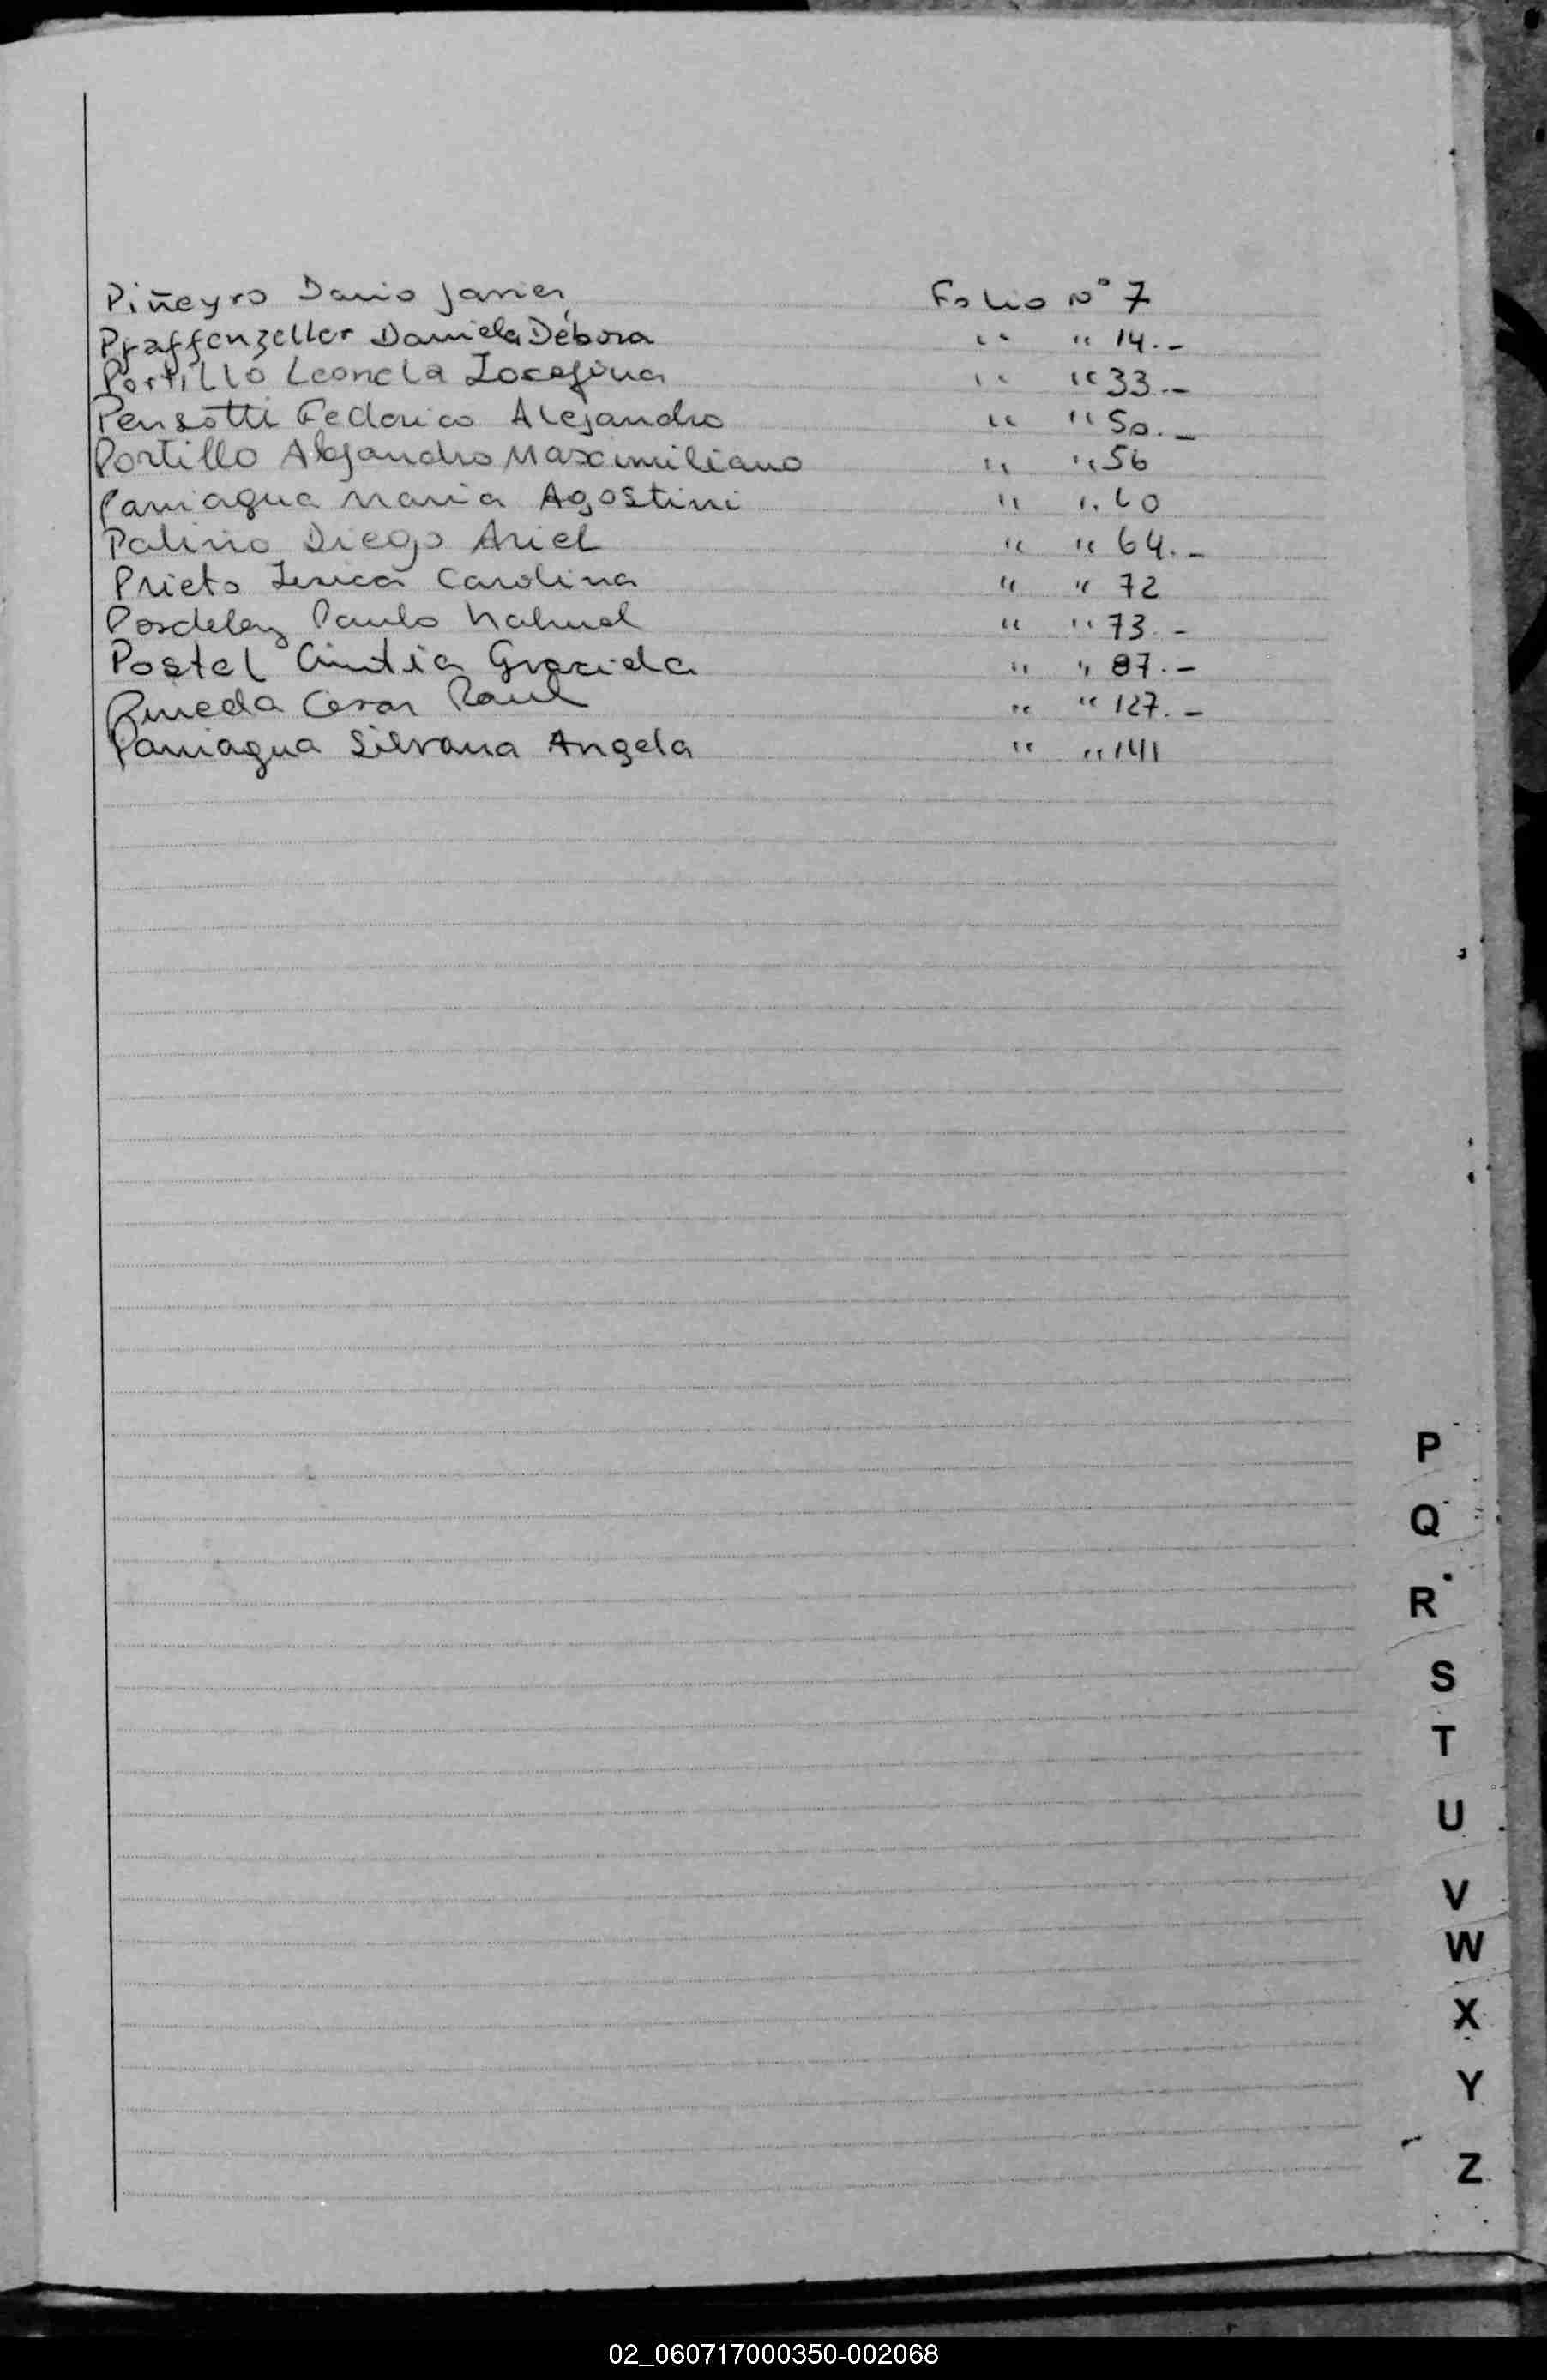 Piñeyro Dario Javier Folio N° 7
Pfaffenzeller Daniela Débora " " 14.-
Portillo Leonela Josefina " " 33.-
Pensotti Federico Alejandro " " 50.-
Portillo Alejandro Maximiliano " " 56
Paniagua Maria Agostini " " 60
Patiño Diego Ariel " " 64.-
Prieto Jesica Carolina " " 72
Paulo Nahuel " " 73.-
Postel Cintia Graciela " " 87.-
Pineda Cesar Raul " " 127.-
Paniagua Silvana Angela " " 141
P
Q
R
S
T
U
V
W
X
Y
Z
02_060717000350-002068